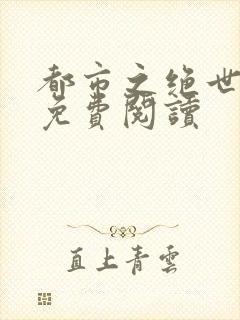 都市之绝世
免費閱讀
直上青雲